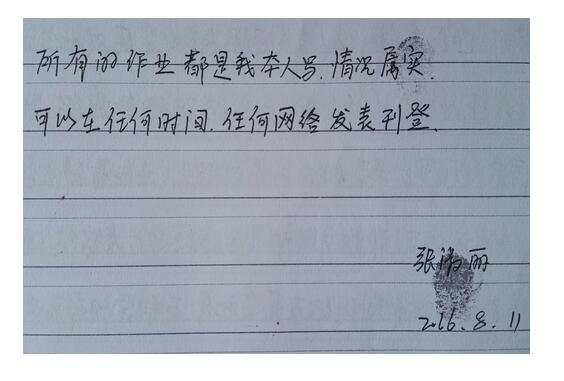 所有的作业都是我本人写.情况属实.
可以在任何时间.任何网络发表刊登.
张海丽
2016.8.11